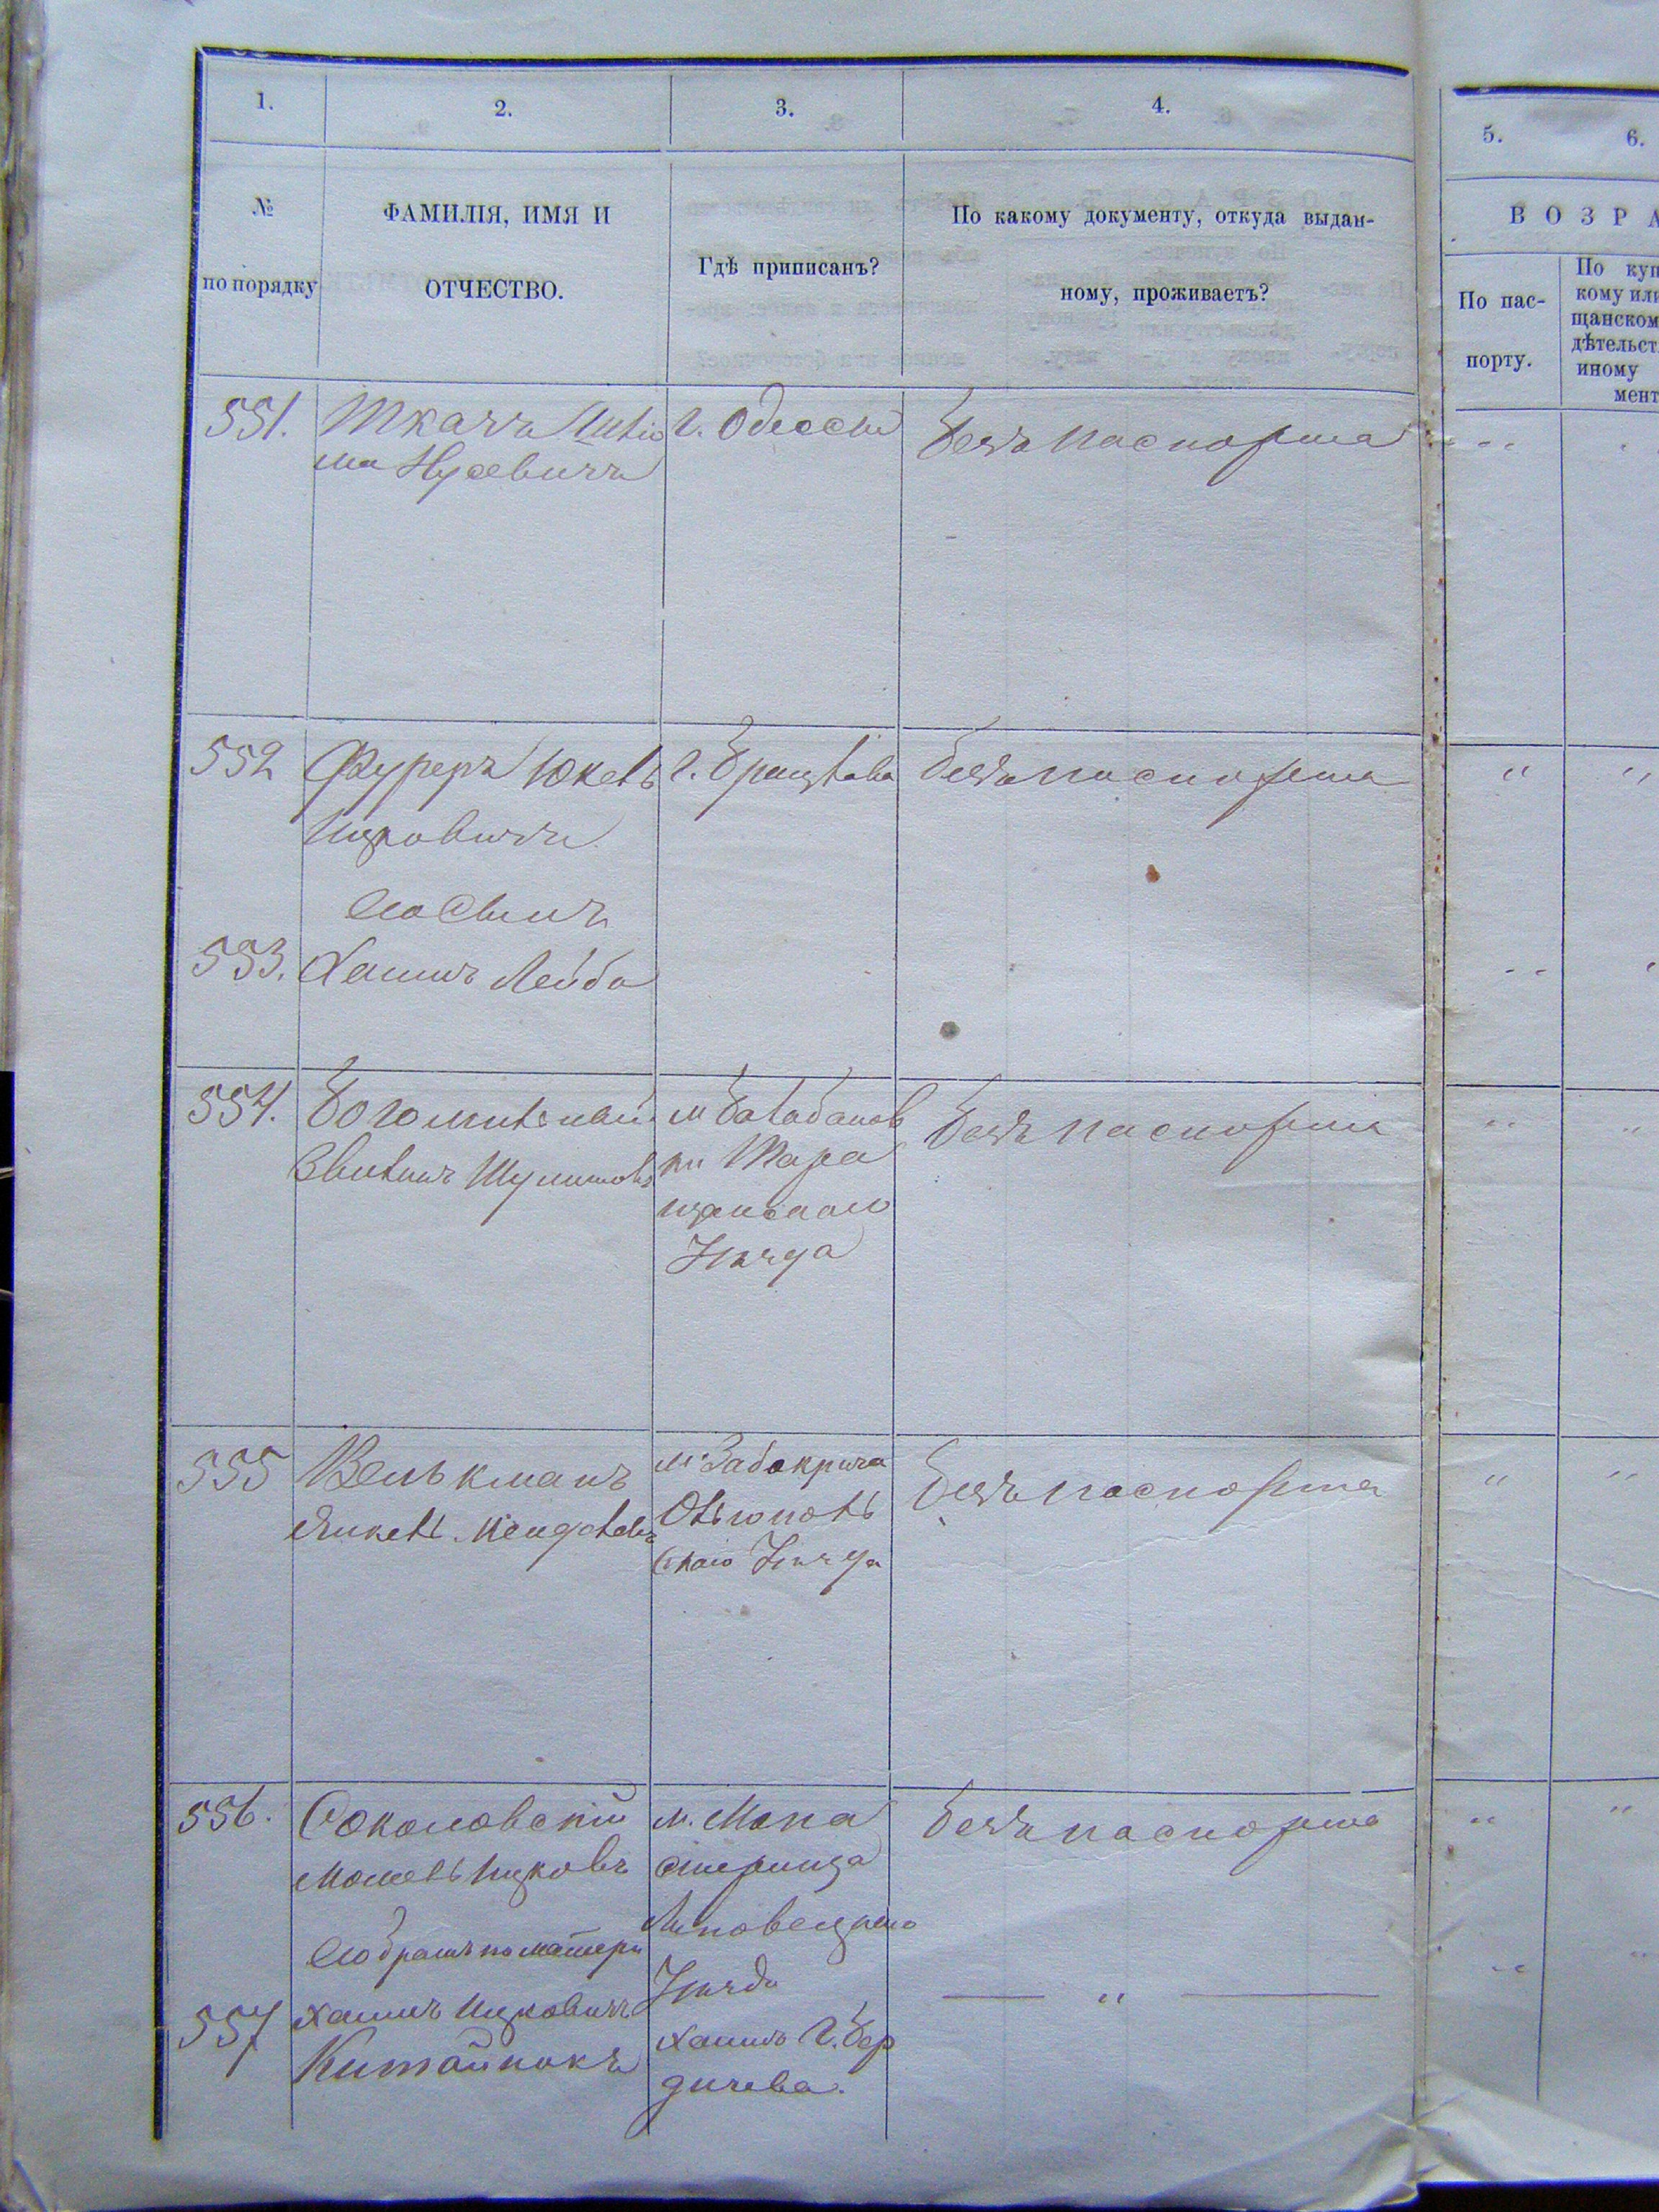 1.
2.
3.
4.
5.
6.
№
по порядку
ФАМИЛІЯ, ИМЯ И
ОТЧЕСТВО.
Гдѣ приписанъ?
По какому документу, откуда выдан-
ному, проживаетъ?
ВОЗРА
По пас-
порту.
По куп
кому или
щанском
дѣтельст
иному
мент
551.
Ткачъ
Нусевичъ
г. Одессы
безъ паспорта
552
Фуреръ Юкель
Ицковичъ
г. Брацлава
безъ паспорта
съ сыномъ
553.
Хаимъ Лейба
554.
Богомильный
Шулимовъ
м Балабанов
ки Тара
щанскаго
Уѣзда
безъ паспорта
555
Велькманъ
Янкель
м. Забокрича
Ольгополь
скаго Уѣзда
безъ паспорта
556.
Соколовскій
Мошель Ицковъ
м. Мона
стирища
Липовецкаго
Уѣзда
безъ паспорта
Собратъ по матери
557
Хаимъ Ицковичъ
Китайникъ
Хаимъ г. Бер
дичева.
— " —